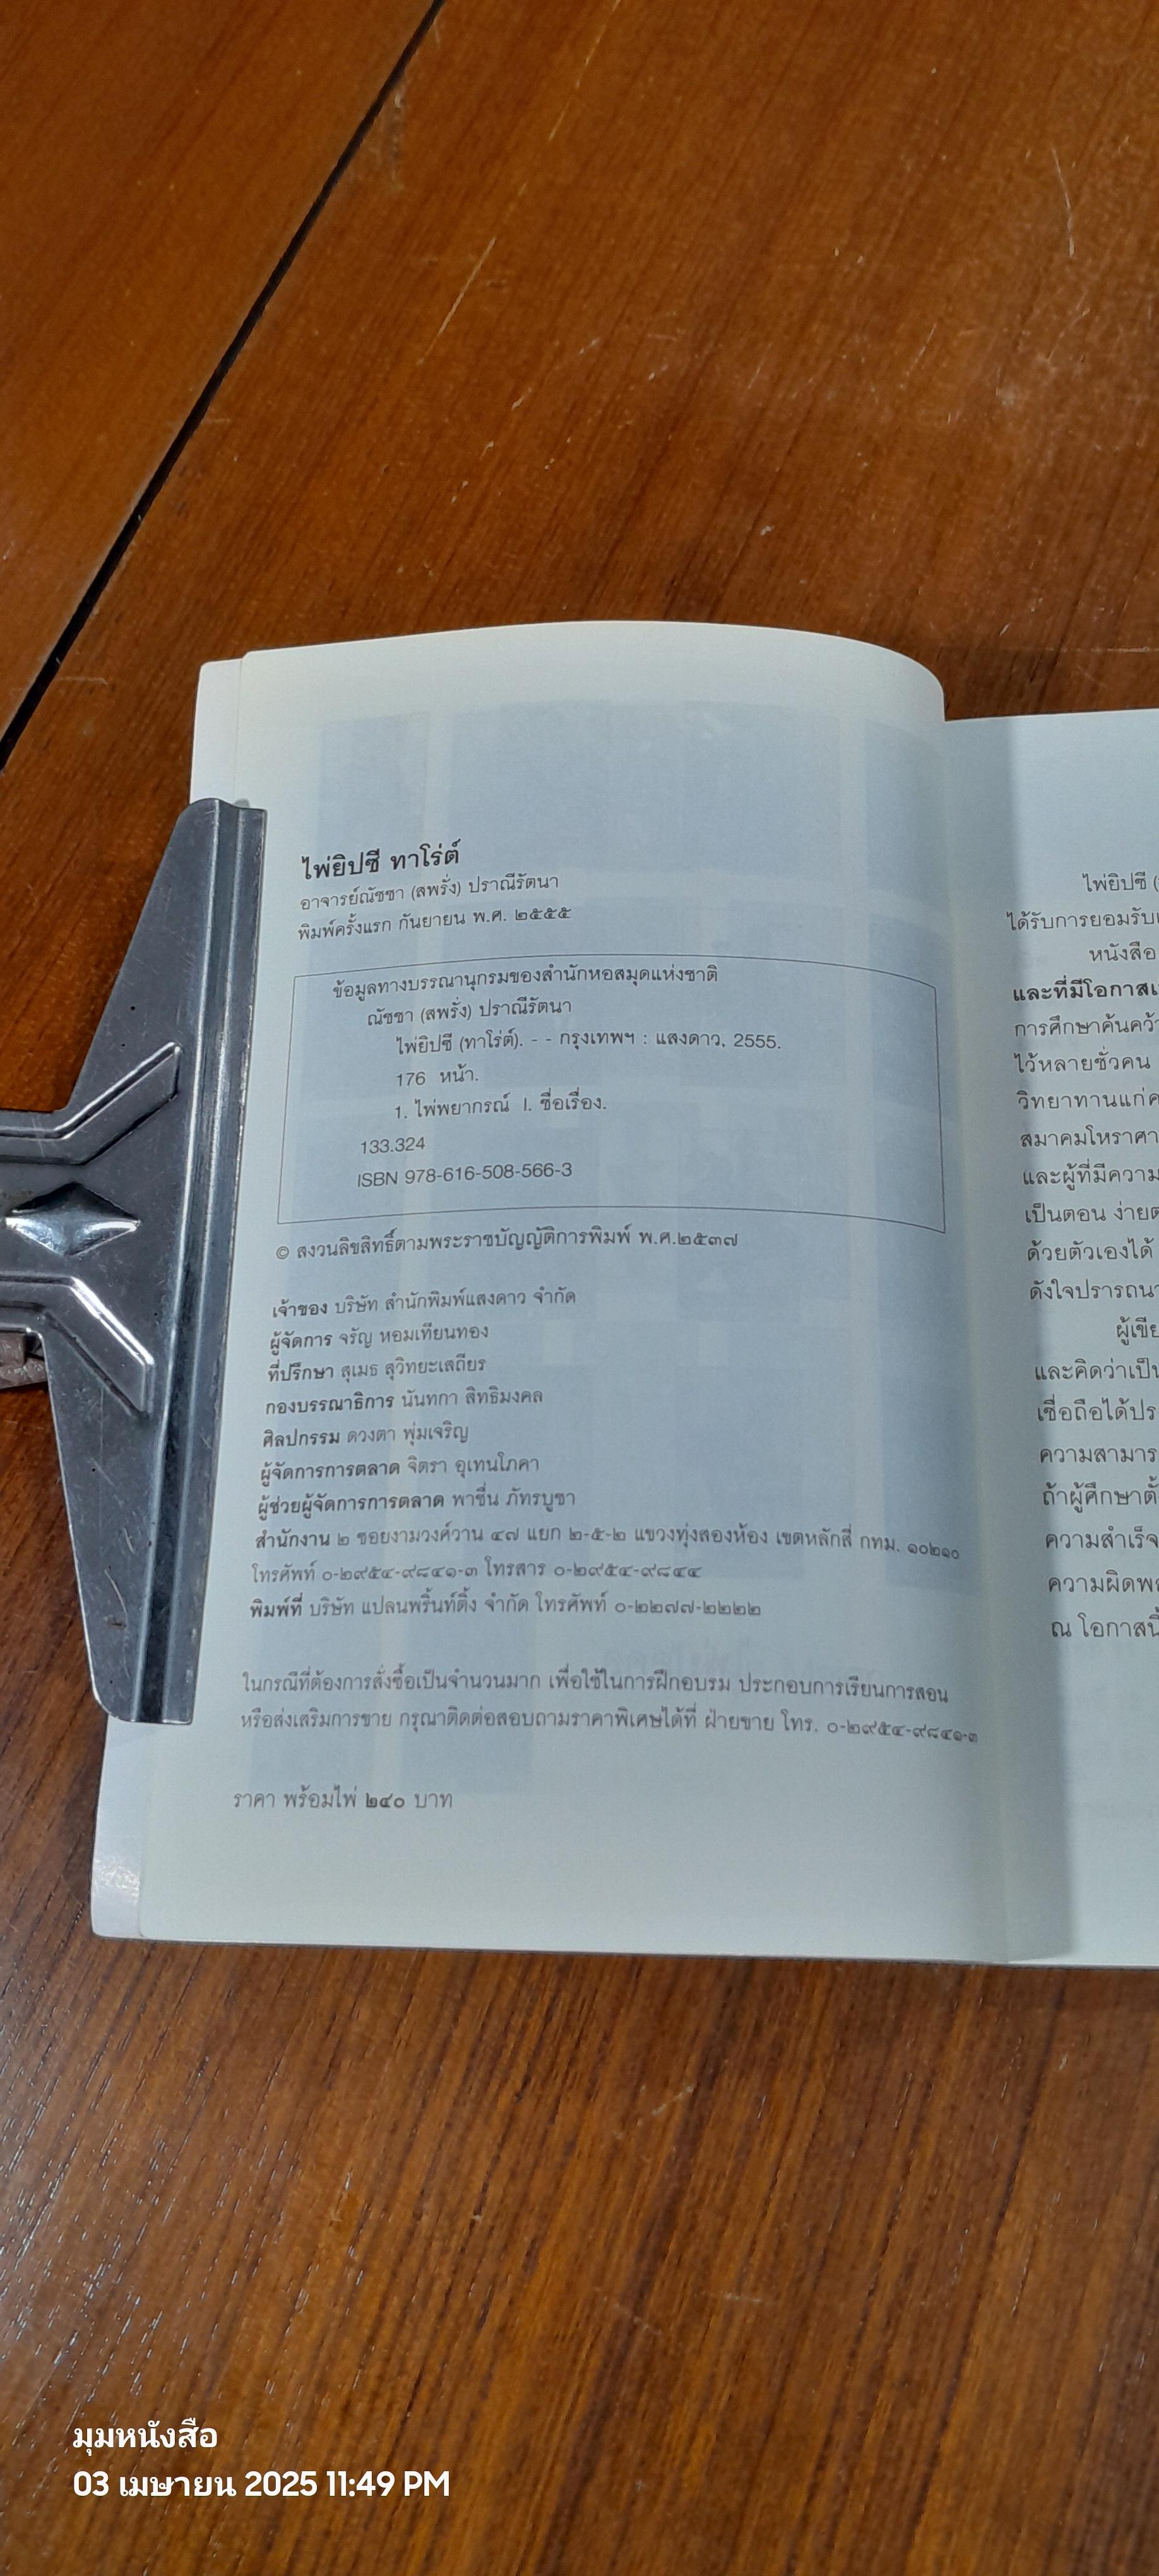 ไพ่ยิปซี ทาโร่ต์
อาจารย์ณัชชา (สพรั่ง) ปราณีรัตนา
พิมพ์ครั้งแรก กันยายน พ.ศ. ๒๕๕๕
ข้อมูลทางบรรณานุกรมของสำนักหอสมุดแห่งชาติ
ณัชชา (สพรั่ง) ปราณีรัตนา
ไพ่ยิปซี (ทาโร่ต์). - - กรุงเทพฯ : แสงดาว, 2555.
176 หน้า.
1. ไพ่พยากรณ์ I. ชื่อเรื่อง.
133.324
ISBN 978-616-508-566-3
© สงวนลิขสิทธิ์ตามพระราชบัญญัติการพิมพ์ พ.ศ.๒๕๓๗
เจ้าของ บริษัท สำนักพิมพ์แสงดาว จำกัด
ผู้จัดการ จรัญ หอมเทียนทอง
ที่ปรึกษา สุเมธ สุวิทยะเสถียร
กองบรรณาธิการ นันทกา สิทธิมงคล
ศิลปกรรม ดวงตา พุ่มเจริญ
ผู้จัดการการตลาด จิตรา อุเทนโภคา
ผู้ช่วยผู้จัดการการตลาด พาชื่น ภัทรบูชา
สำนักงาน ๒ ซอยงามวงศ์วาน ๔๗ แยก ๒-๕-๒ แขวงทุ่งสองห้อง เขตหลักสี่ กทม. ๑๐๒๑๐
โทรศัพท์ ๐-๒๙๕๔-๙๘๔๑-๓ โทรสาร ๐-๒๙๕๔-๙๘๔๔
พิมพ์ที่ บริษัท แปลนพริ้นท์ติ้ง จำกัด โทรศัพท์ ๐-๒๒๗๗-๒๒๒๒
ในกรณีที่ต้องการสั่งซื้อเป็นจำนวนมาก เพื่อใช้ในการฝึกอบรม ประกอบการเรียนการสอน
หรือส่งเสริมการขาย กรุณาติดต่อสอบถามราคาพิเศษได้ที่ ฝ่ายขาย โทร. ๐-๒๙๕๔-๙๘๔๑-๓
ราคา พร้อมไพ่ ๒๔๐ บาท
ไพ่ยิปซี (
ได้รับการยอมรับ
หนังสือ
และที่มีโอกาส
การศึกษาค้นคว้า
ไว้หลายชั่วคน
วิทยาทานแก่
สมาคมโหราศา
และผู้ที่มีความ
เป็นตอน ง่าย
ด้วยตัวเองได้
ดังใจปรารถนา
ผู้เขีย
และคิดว่าเป็น
เชื่อถือได้ประ
ความสามาร
ถ้าผู้ศึกษาตั้
ความสำเร็จ
ความผิดพ
ณ โอกาสนี้
มุมหนังสือ
03 เมษายน 2025 11:49 PM